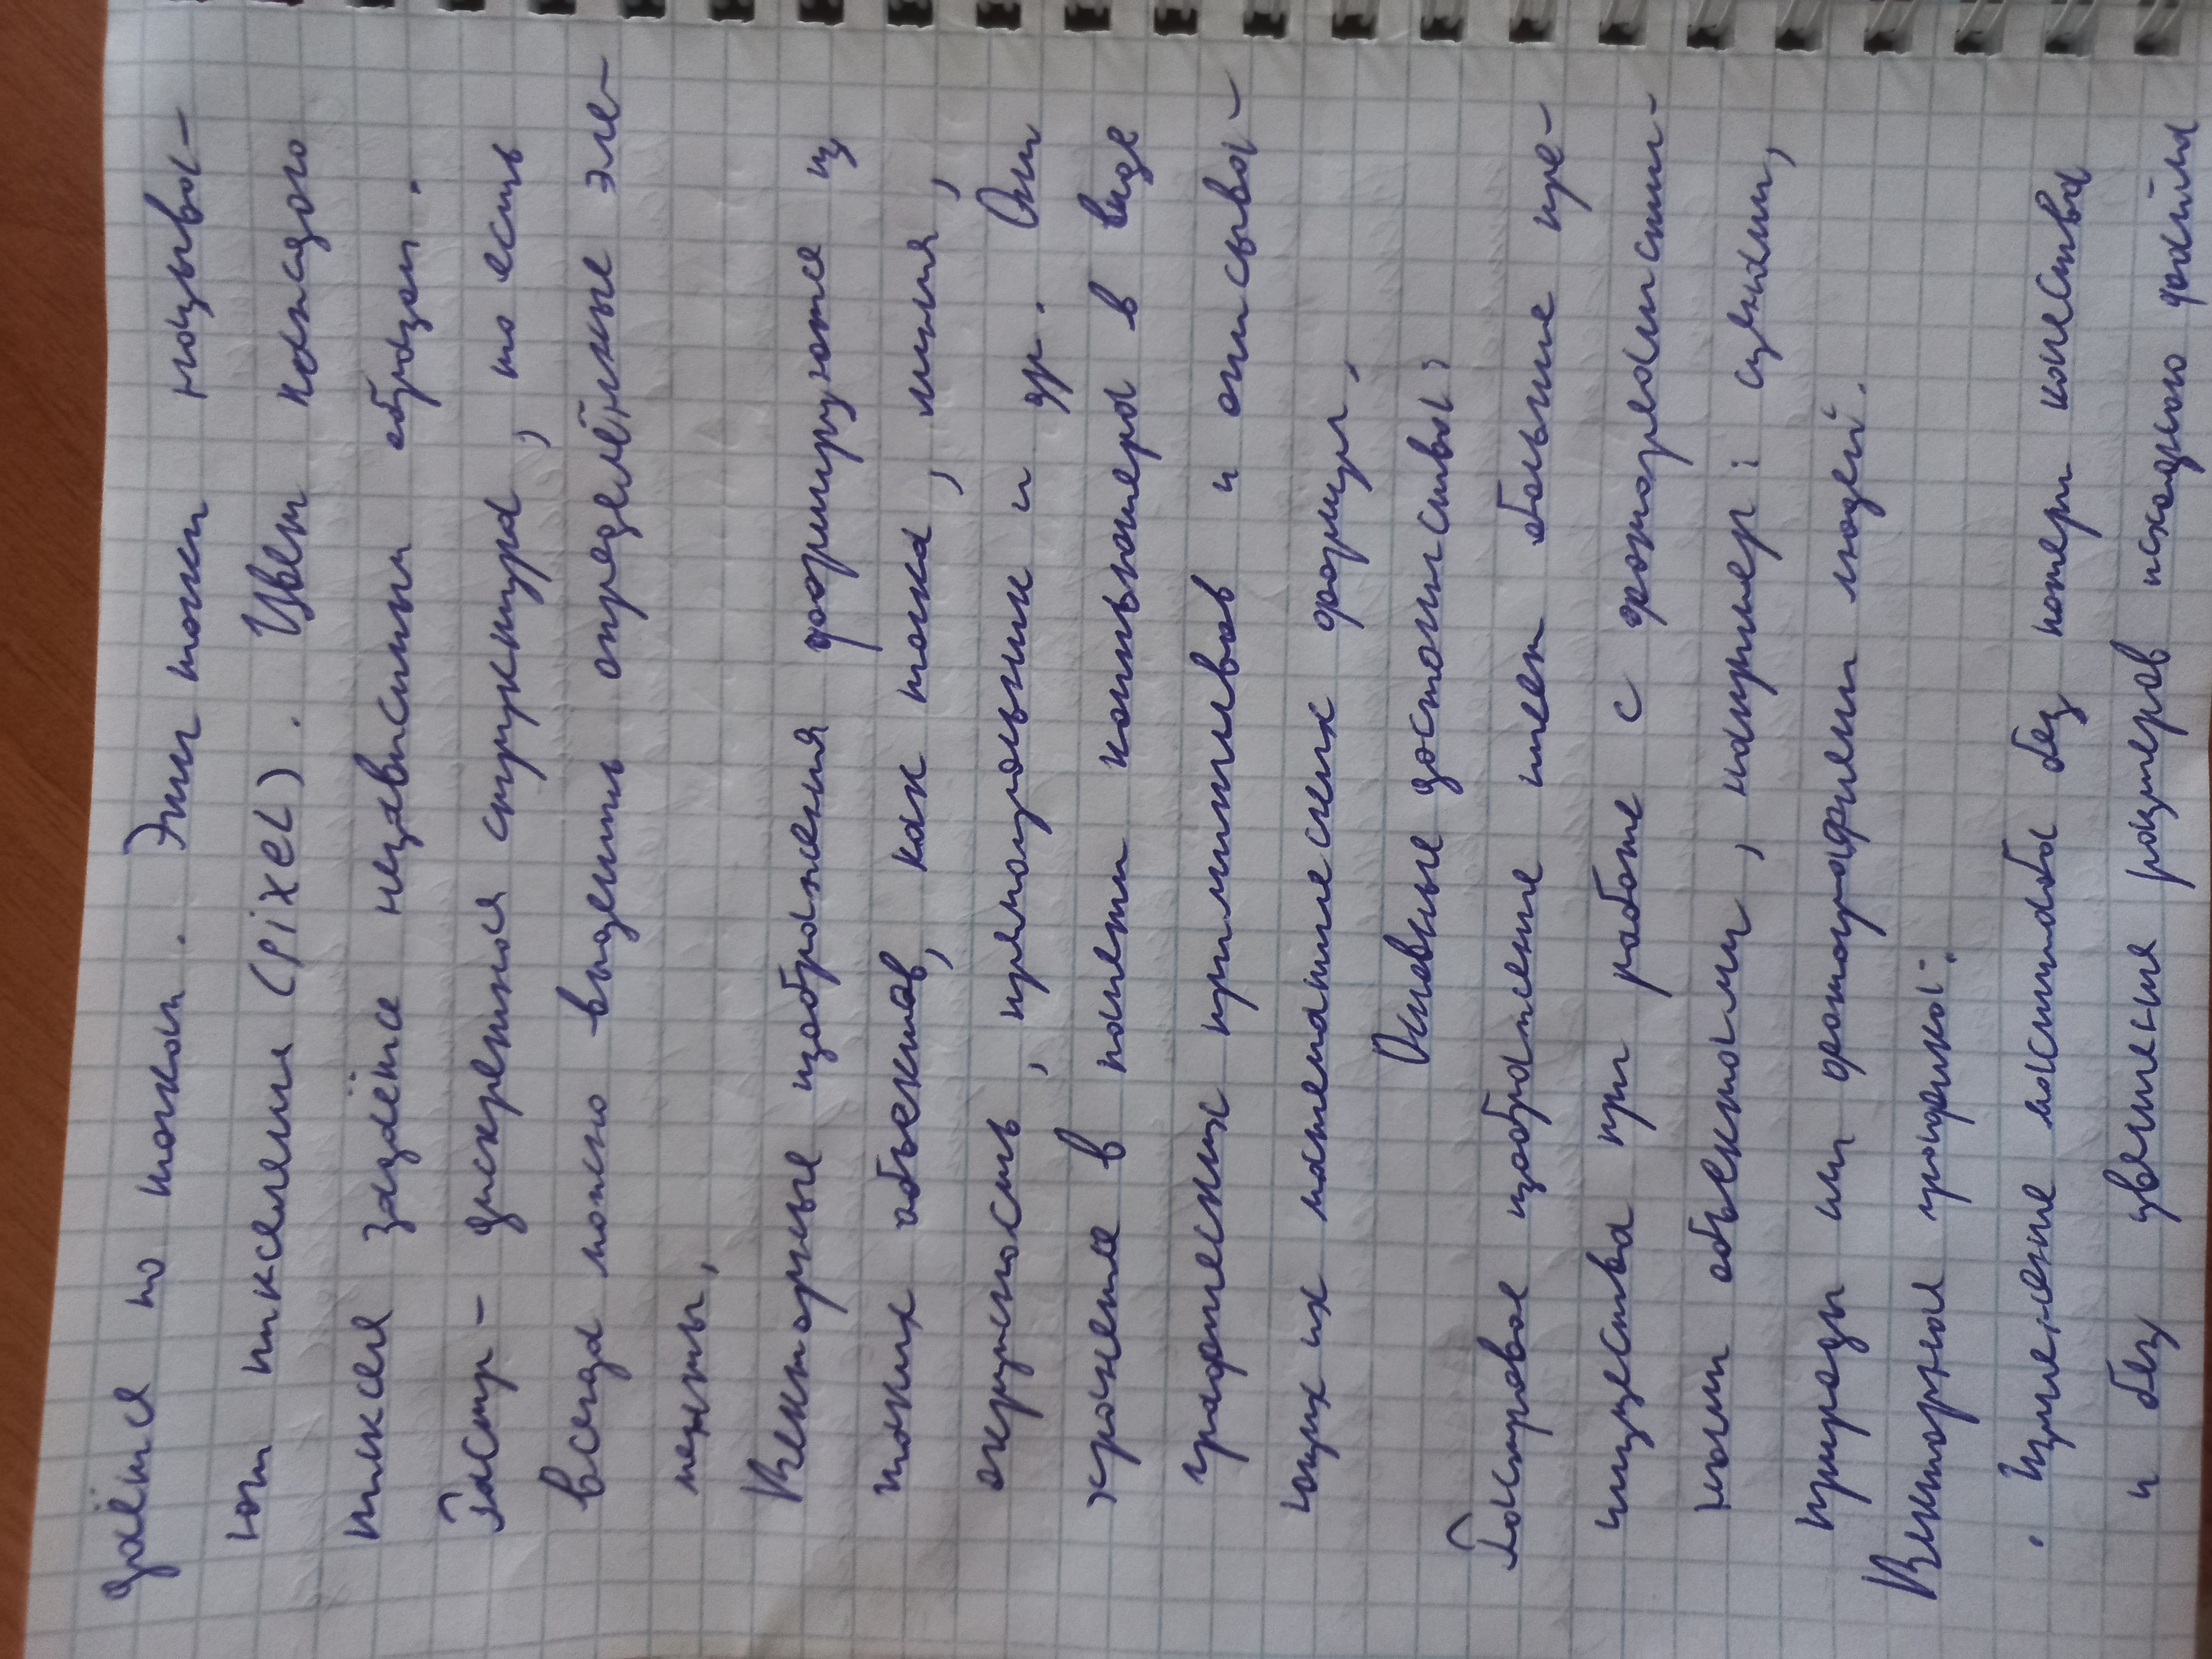 даётся по точкам. Эти точки называ-
ют пикселями (pixel). Цвет каждого
пикселя задаётся независимым образом.
Растр - дискретная структура, то есть
всегда можно выделить определённые эле-
менты,
Векторные изображения формируются из
таких объектов, как точка, линия,
окружность, прямоугольник и др. Они
хранятся в памяти компьютера в виде
графических примитивов и описываю-
щих их математических формул,
Основные достоинства:
Растровое изображение имеет большие пре-
имущества при работе с фотореалистич-
ными объектами, например: сценами,
природы или фотографиями людей.
Векторная графика:
· Изменение масштаба без потери качества
и без увеличения размеров исходного файла